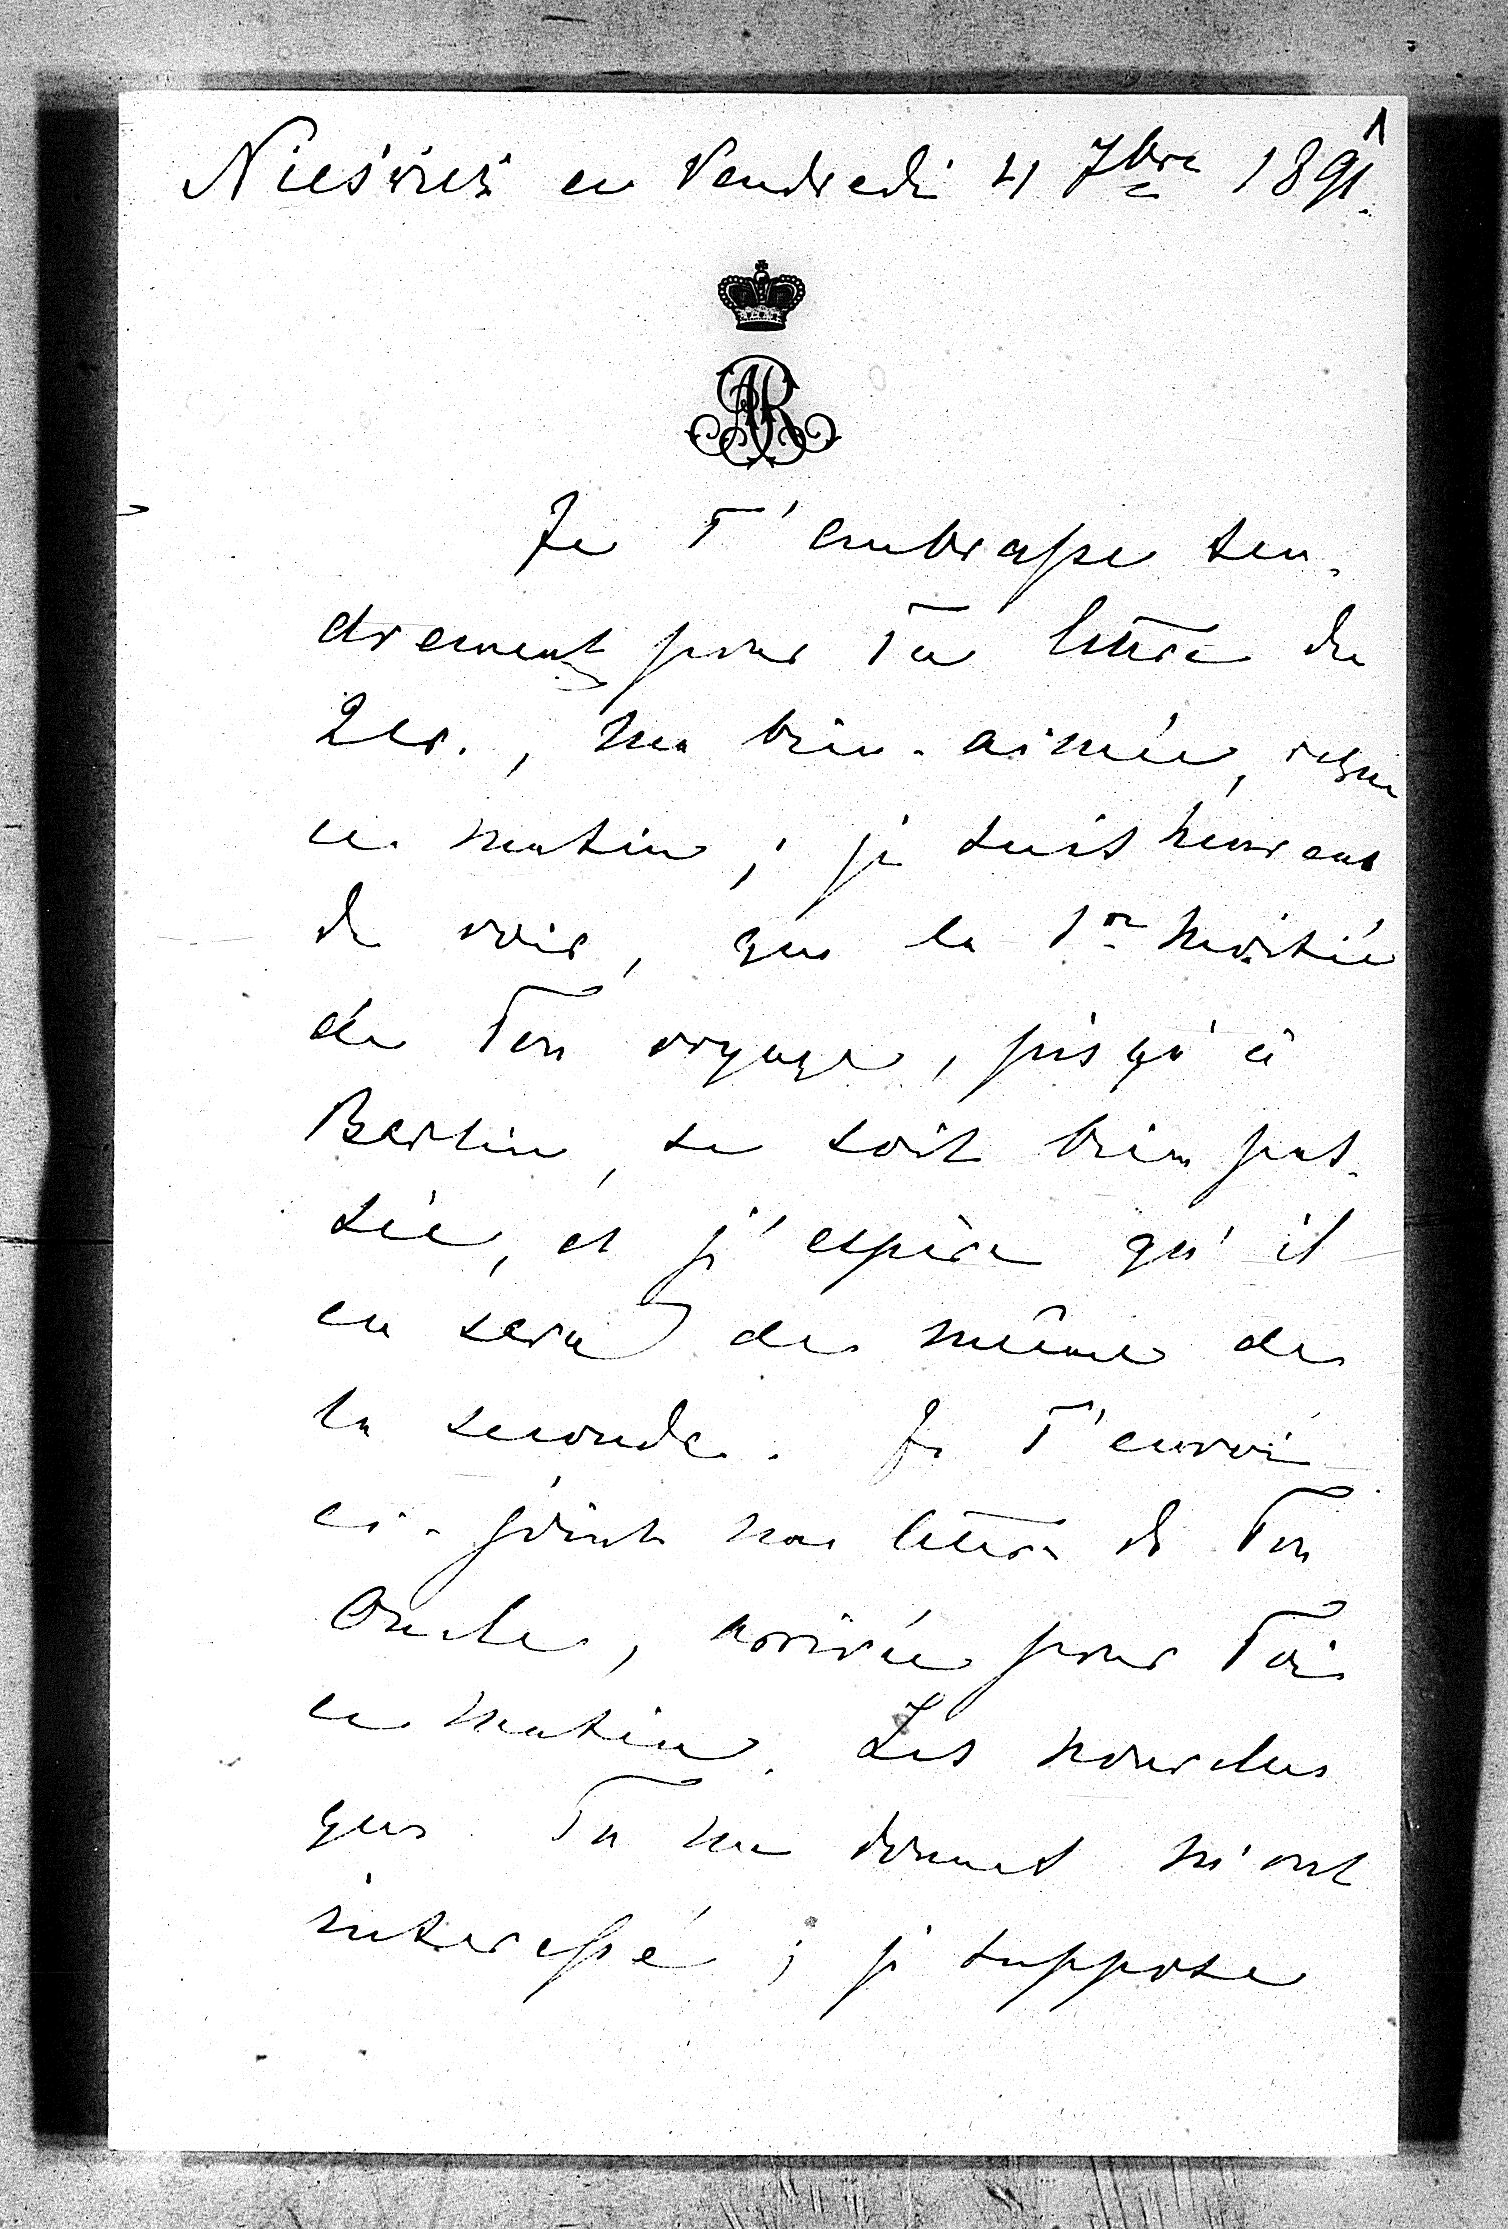 Nieśwież ce Vendredi 4 7bre 1891.
1
AR
Je T'embrasse ten-
drement pour Ta lettre du
2 cr., ma bien-aimée, reçue
ce matin; je suis heureux
de voir, que la 1re moitié
de Ton voyage, jusqu'à
Berlin, se soit bien pas-
sée, et j'espère qu'il
en sera de même de
la seconde. Je T'envoie
ci-joint une lettre de Ton
Oncle, arrivée pour Toi
ce matin. Les nouvelles
que Tu me donnes m'ont
interessé; je suppose